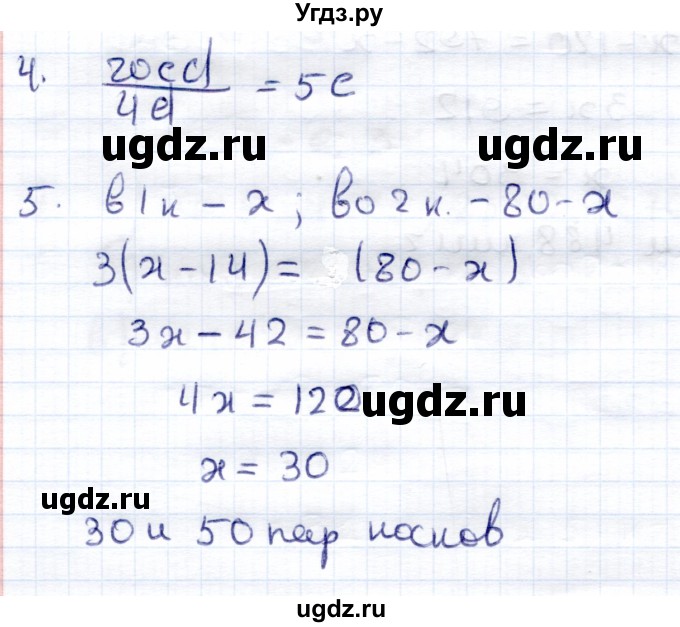 Угдз.ру
4. 20cd/4d = 5c
ugdz.ru ugdz.ru
5. в 1 к – x; во 2 к. – 80 – x
3(x – 14) = (80 – x)
3x – 42 = 80 – x
4x = 120
ugdz.ru
x = 30
ugdz.ru
30 и 50 пар носков
ugdz.ru